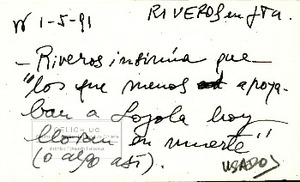 1-5-91 RIVEROS en JTA.
- Riveros insinúa que
"los que menos apoya-
ban a Loyola hoy
lloran en muerte"
(o algo así).
USADOS